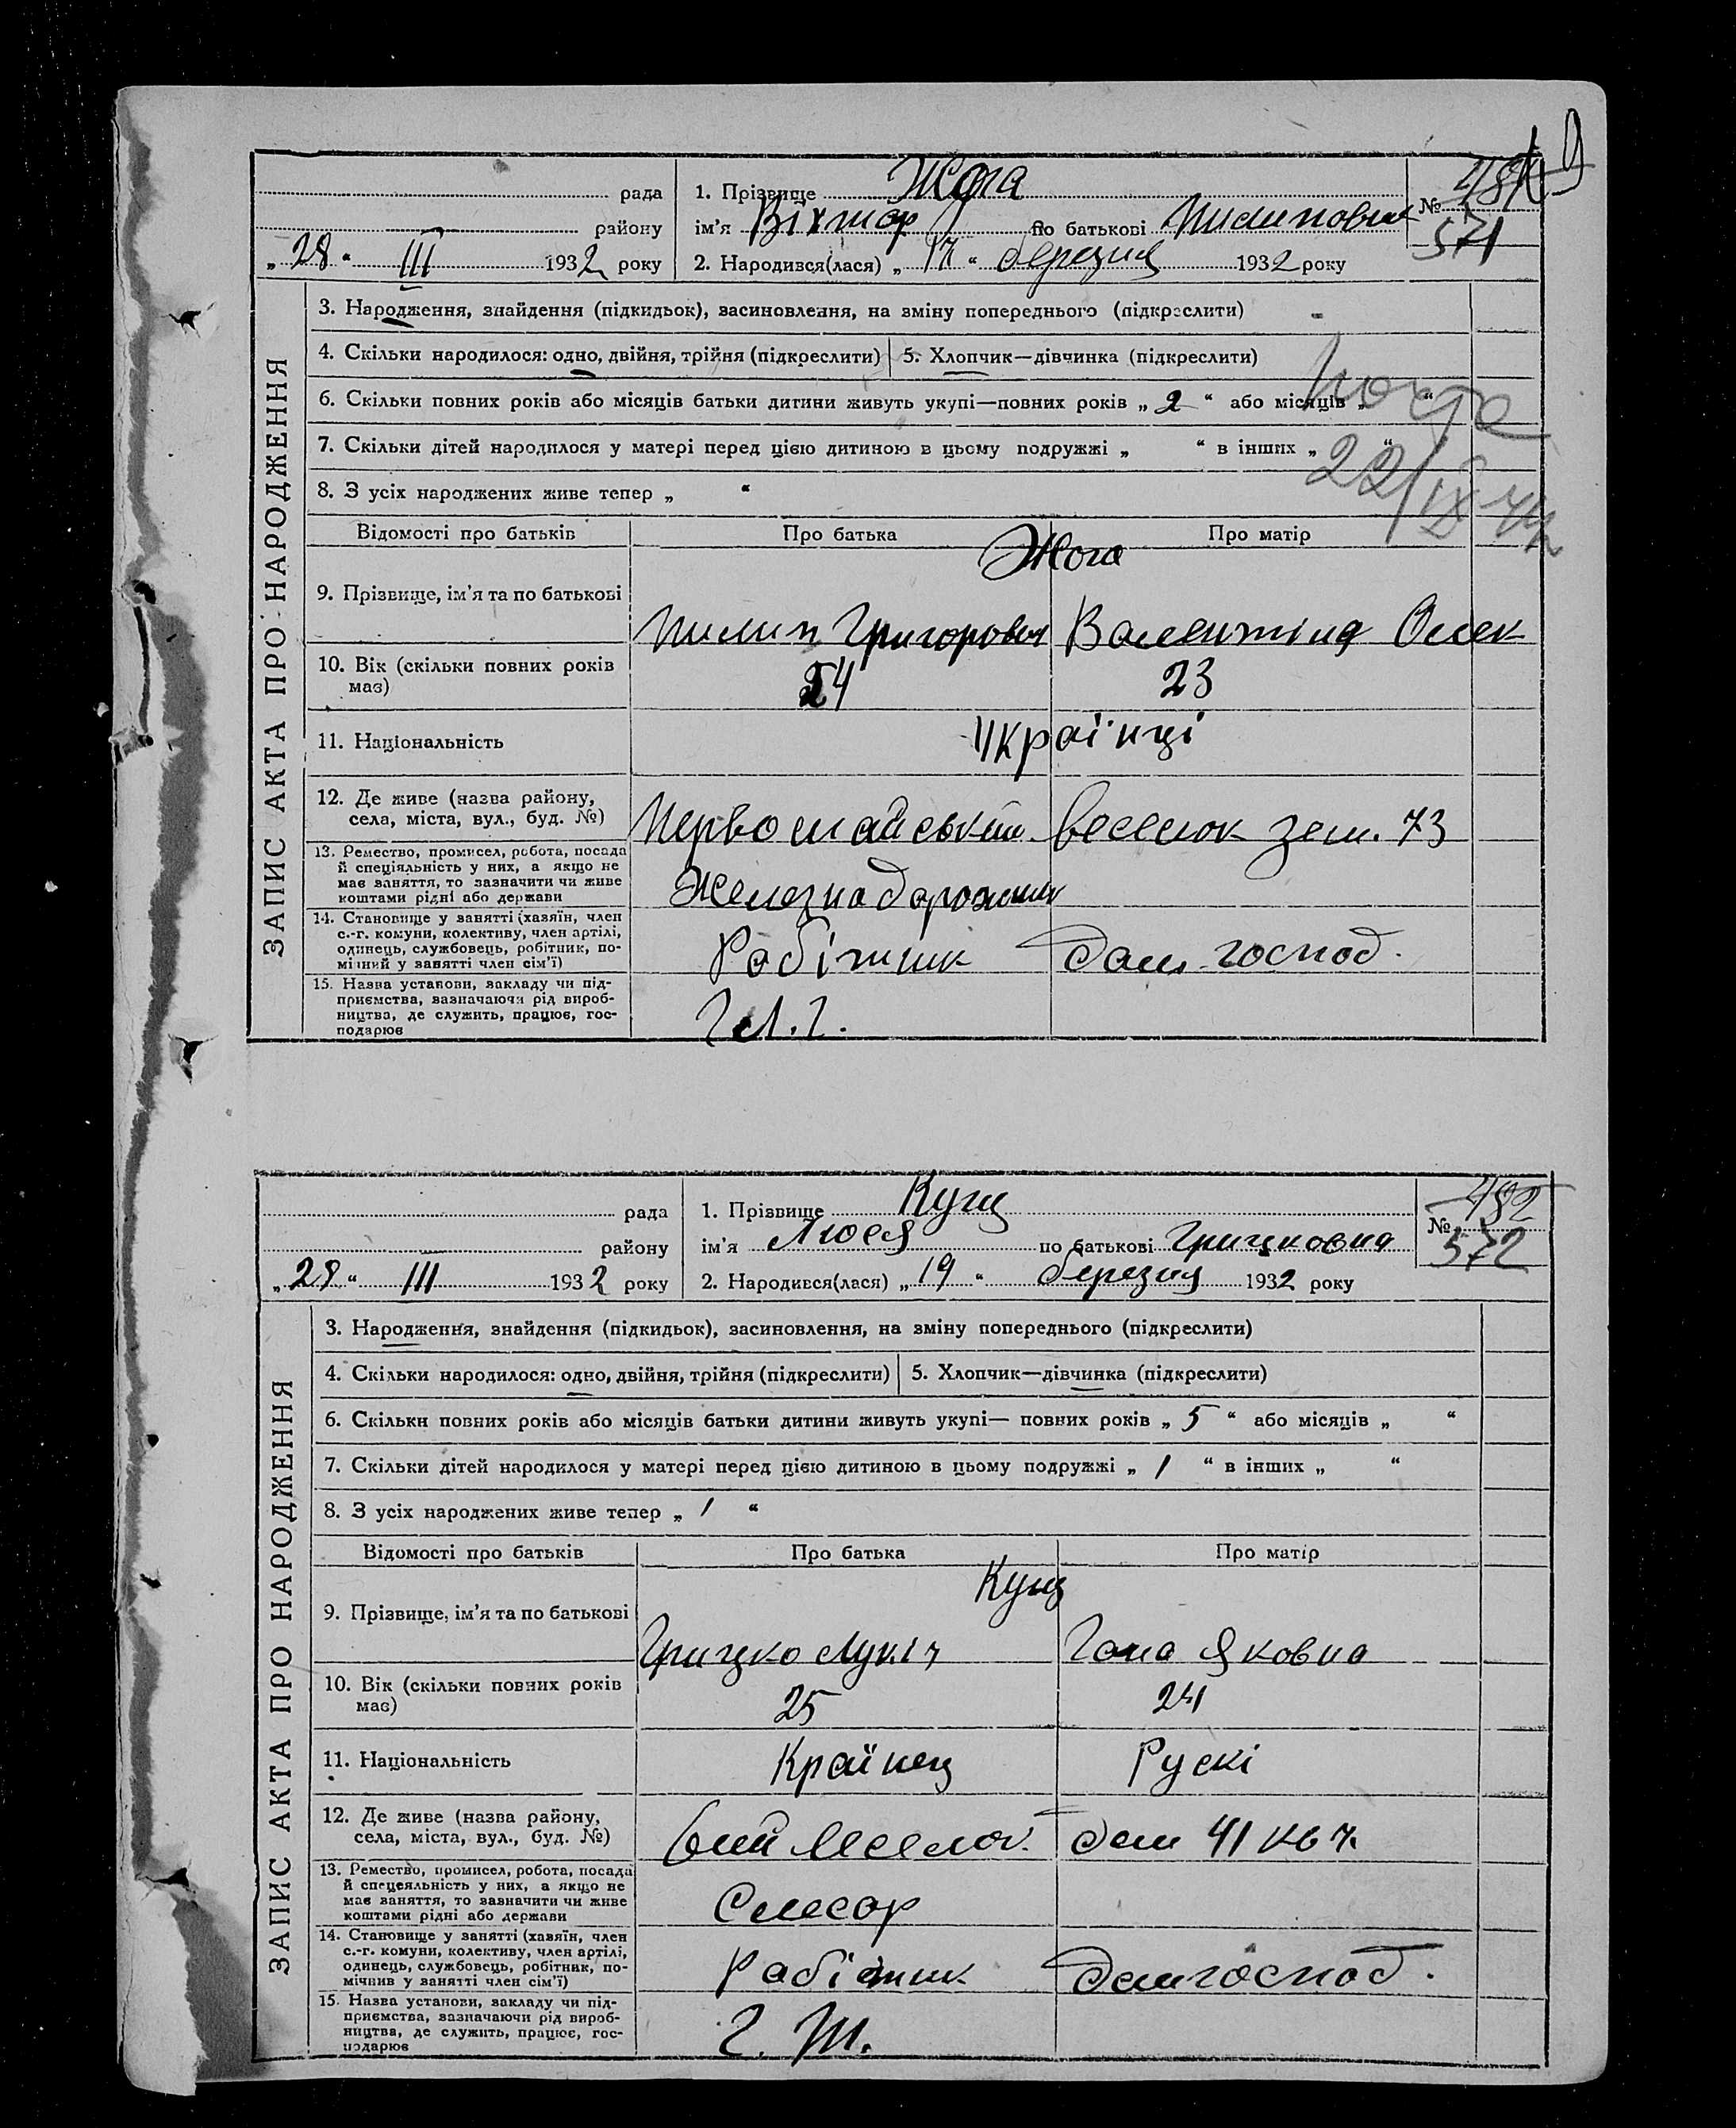 рада
1. Прізвище Жога
№ 481
571
району
ім'я Віхтор по батькові Пилипович
„28“ III 1932 року
2. Народився(лася) „17“ березня 1932 року
ЗАПИС АКТА ПРО НАРОДЖЕННЯ
3. Народження, знайдення (підкидьок), засиновлення, на зміну попереднього (підкреслити)
4. Скільки народилося: одно, двійня, трійня (підкреслити) 5. Хлопчик—дівчинка (підкреслити)
6. Скільки повних років або місяців батьки дитини живуть укупі—повних років „2“ або місяців „ “
7. Скільки дітей народилося у матері перед цією дитиною в цьому подружжі „ “ в інших „ “
22/IX 44
8. З усіх народжених живе тепер „ “
Відомості про батьків Про батька Про матір
Жога
9. Прізвище, ім'я та по батькові
Пилип Григорович Валентина Олек
10. Вік (скільки повних років
має)
24 23
11. Національність Українці
12. Де живе (назва району,
села, міста, вул., буд. №)
Первомайський. веселок зем. 73
13. Ремество, промисел, робота, посада
й спеціяльність у них, а якщо не
має заняття, то зазначити чи живе
коштами рідні або держави
Железнадорожник
14. Становище у занятті (хазяїн, член
с.-г. комуни, колективу, член артілі,
одинець, службовець, робітник, по-
мічний у занятті член сім'ї)
Робітник Дом. господ.
15. Назва установи, закладу чи під-
приємства, зазначаючи рід вироб-
ництва, де служить, працює, гос-
подарює
рада
1. Прізвище Кущ
№ 482
572
району
ім'я Люся по батькові Грицковна
„28“ III 1932 року
2. Народився(лася) „19“ березня 1932 року
ЗАПИС АКТА ПРО НАРОДЖЕННЯ
3. Народження, знайдення (підкидьок), засиновлення, на зміну попереднього (підкреслити)
4. Скільки народилося: одно, двійня, трійня (підкреслити) 5. Хлопчик—дівчинка (підкреслити)
6. Скільки повних років або місяців батьки дитини живуть укупі— повних років „5“ або місяців „ “
7. Скільки дітей народилося у матері перед цією дитиною в цьому подружжі „1“ в інших „ “
8. З усіх народжених живе тепер „1“
Відомості про батьків Про батька Про матір
Кущ
9. Прізвище, ім'я та по батькові
Грицко Лукіч Гана Яковна
10. Вік (скільки повних років
має)
25 24
11. Національність Країнец Рускі
12. Де живе (назва району,
села, міста, вул., буд. №)
дом 41 кв 4
13. Ремество, промисел, робота, посада
й спецеяльність у них, а якщо не
має заняття, то зазначити чи живе
коштами рідні або держави
Слесар
14. Становище у занятті (хазяїн, член
с.-г. комуни, колективу, член артілі,
одинець, службовець, робітник, по-
мічнив у занятті член сім'ї)
Робітник Домгоспод.
15. Назва установи, закладу чи під-
приємства, зазначаючи рід вироб-
ництва, де служить, працює, гос-
подарює